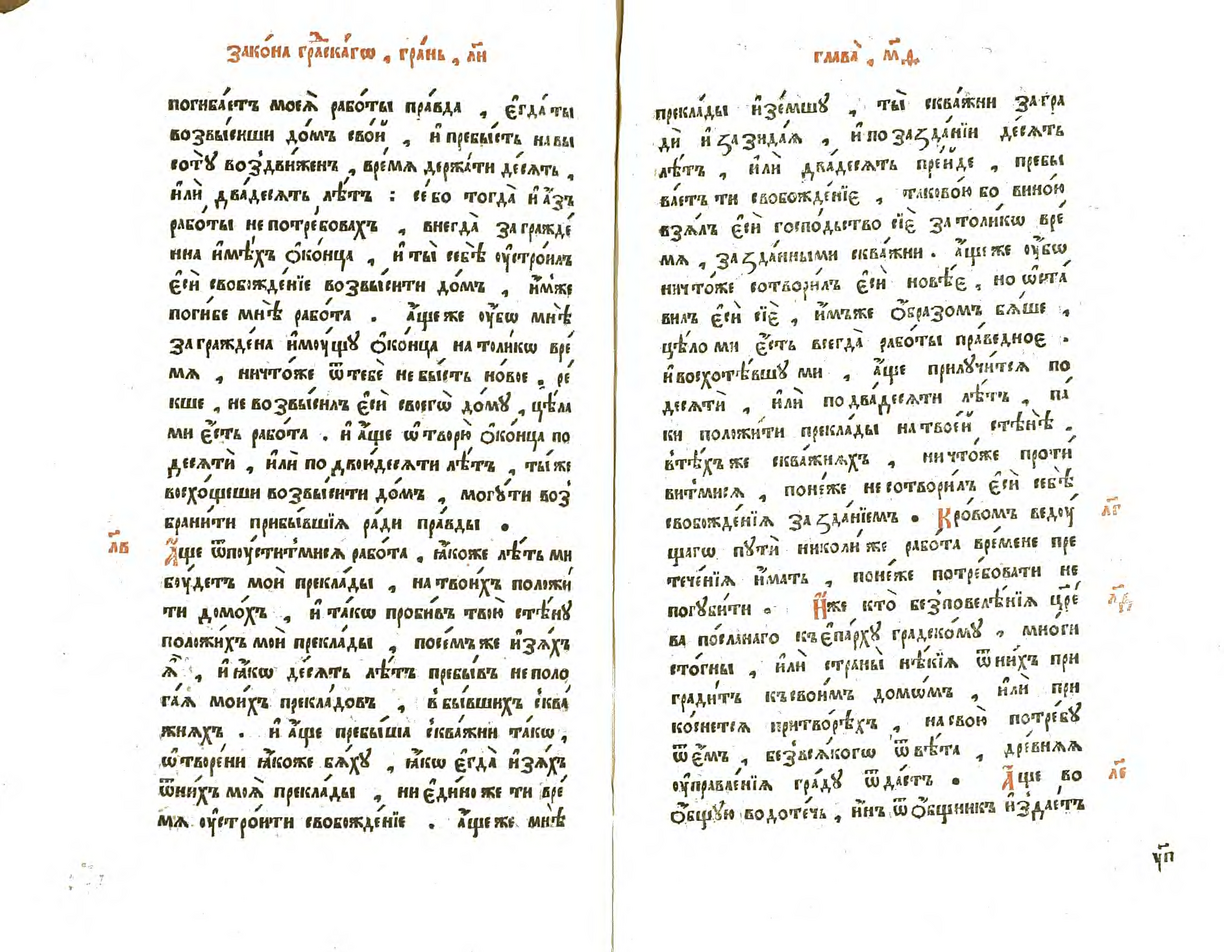 Зако́на гра́дскагѡ , гра́нь , л҃и
погиба́етъ моеѧ̀ рабо́ты пра́вда , є҆гда̀ ты
возвы́сиши до́мъ сво́й , и҆ пребы́сть на вы
сотꙋ̀ воздви́женъ , вре́мѧ держа́ти де́сѧть ,
и҆лѝ два́десѧть лѣ́тъ : се́ бо тогда̀ и҆ а҆́зъ
рабо́ты не потре́бовахъ , внегда̀ загражде́
нна и҆мѣ́хъ ѻ҆ко́нца , и҆ ты̀ себѣ̀ ᲂу҆стро́илъ
є҆сѝ свобожде́нїе возвы́сити до́мъ , и҆́мже
поги́бе мнѣ̀ рабо́та . А҆́ще же ᲂу҆́бѡ мнѣ̀
загражде́на и҆мꙋ́щꙋ ѻ҆ко́нца на толи́кѡ вре́
мѧ , ничто́же ѿ тебѐ не бы́сть но́вое , ре́
кше , не возвы́силъ є҆сѝ своегѡ̀ до́мꙋ , цѣ́ла
ми є҆́сть рабо́та . и҆ а҆́ще ѿворю̀ ѻ҆ко́нца по
десѧтѝ , и҆лѝ по двои́десѧти лѣ́тъ , ты́ же
восхо́щеши возвы́сити до́мъ , могꙋ́ ти воз̾
брани́ти прибы́вшїѧ ра́ди пра́вды .
л҃в
А҆́ще ѿпꙋсти́тмисѧ рабо́та , ꙗ҆́коже лѣ́ть ми
бꙋ́детъ моѝ прекла́ды , на твои́хъ положи́
ти домо́хъ , и҆ та́кѡ проби́въ твою̀ стѣ́нꙋ
положи́хъ моѝ прекла́ды , посе́мъ же и҆зѧ́хъ
ѧ҆̀ , и҆ ꙗ҆́кѡ де́сѧть лѣ́тъ пребы́въ не поло
га́ѧ мои́хъ прекла́довъ , в̾ бы́вшихъ сква́
жнѧхъ . и҆ а҆́ще пребы́ша сква́жни та́кѡ ,
ѿворе́ни ꙗ҆́коже бѧ́хꙋ , ꙗ҆́кѡ є҆гда̀ и҆зѧ́хъ
ѿ ни́хъ моѧ̀ прекла́ды , ни є҆ди́но же ти вре́
мѧ ᲂу҆стро́ити свобожде́нїе . А҆́ще же мнѣ̀
глава̀ , м҃ѳ .
прекла́ды и҆зе́мшꙋ , ты̀ сква́жни загра
дѝ и҆ заꙁида́ѧ , и҆ по заꙁда́нїи де́сѧть
лѣ́тъ , и҆лѝ два́десѧть пре́йде , пребы
ва́етъ ти свобожде́нїе , таково́ю бо вино́ю
взѧ́лъ є҆сѝ госпо́дьство сїѐ за толи́кѡ вре́
мѧ , заꙁда́нными сква́жни . А҆́ще же ᲂу҆́бѡ
ничто́же сотвори́лъ є҆сѝ новѣ́е , но ѡ҆ста́
вилъ є҆сѝ сїѐ , и҆́мъже ѻ҆́бразомъ бѧ́ше ,
цѣ́ло ми є҆́сть всегда̀ рабо́ты пра́ведное .
и҆ восхотѣ́вшꙋ ми , а҆́ще прилꙋчи́тсѧ по
десѧтѝ , и҆лѝ по два́десѧти лѣ́тъ , па́
ки положи́ти прекла́ды на твое́й стѣнѣ̀ ,
в̾ тѣ́хъ же сква́жнѧхъ , ничто́же проти́
витмисѧ , поне́же не сотвори́лъ є҆сѝ себѣ̀
свобожде́нїѧ заꙁда́нїемъ . Кро́вомъ ведꙋ́
л҃г
щагѡ пꙋтѝ николи́ же рабо́та вре́мене пре
тече́нїѧ и҆́мать , поне́же потребова́ти не
погꙋби́ти . И҆́же кто̀ без̾ повелѣ́нїѧ цр҃е́
л҃д
ва по́сланаго къ є҆па́рхꙋ градско́мꙋ , мно́ги
сто́гны , и҆лѝ страны̀ нѣ́кїѧ ѿ ни́хъ при
гради́тъ къ свои́мъ домѡ́мъ , и҆лѝ при
ко́снетсѧ притво́рѣхъ , на свою̀ потре́бꙋ
ѿе́мъ , без̾ всѧ́когѡ ѿвѣ́та , дре́внѧѧ
ᲂу҆правле́нїѧ гра́дꙋ ѿда́стъ . А҆́ще во
л҃е
ѻ҆́бщꙋю водоте́чь , и҆́нъ ѿ ѻ҆́бщникъ и҆здае́тъ
ᲂу҃п